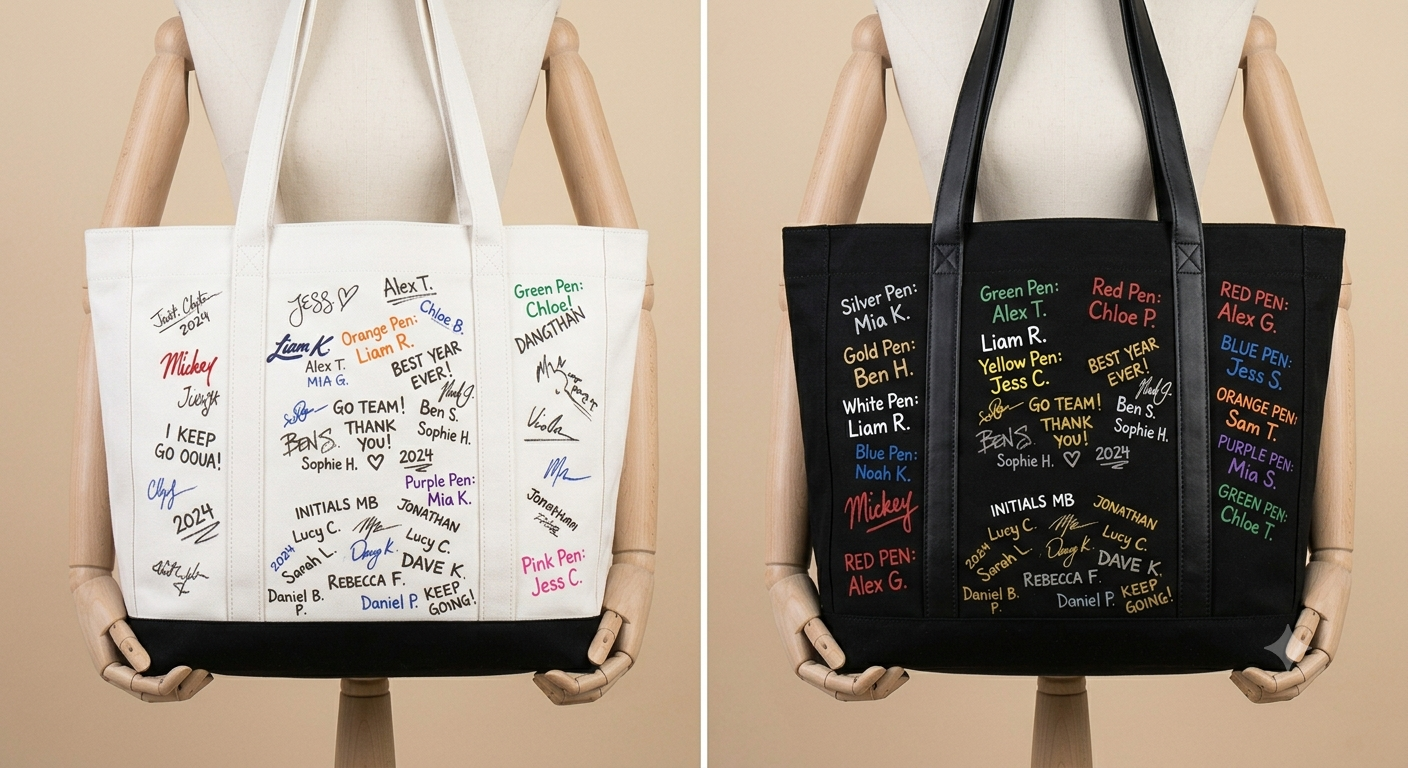 2024
Mickey
I KEEP
GO OOUA!
2024
JESS
Alex T.
Chloe B.
Liam K.
Orange Pen:
Liam R.
Alex T.
MIA G.
BEST YEAR
EVER!
GO TEAM!
THANK
YOU!
BEN S.
Ben S.
Sophie H.
Sophie H.
2024
Purple Pen:
Mia K.
INITIALS MB
JONATHAN
Lucy C.
Lucy C.
2024
Sarah L.
Doug K.
DAVE K.
REBECCA F.
Daniel B.
P.
Daniel P.
KEEP
GOING!
Green Pen:
Chloe!
DANGTHAN
Pink Pen:
Jess C.
Silver Pen:
Mia K.
Gold Pen:
Ben H.
White Pen:
Liam R.
Blue Pen:
Noah K.
Mickey
RED PEN:
Alex G.
Green Pen:
Alex T.
Liam R.
Yellow Pen:
Jess C.
Red Pen:
Chloe P.
BEST YEAR
EVER!
GO TEAM!
THANK
YOU!
BEN S.
Ben S.
Sophie H.
Sophie H.
2024
INITIALS MB
JONATHAN
Lucy C.
Lucy C.
2024
Sarah L.
Doug K.
DAVE K.
REBECCA F.
Daniel B.
P.
Daniel P.
KEEP
GOING!
RED PEN:
Alex G.
BLUE PEN:
Jess S.
ORANGE PEN:
Sam T.
PURPLE PEN:
Mia S.
GREEN PEN:
Chloe T.